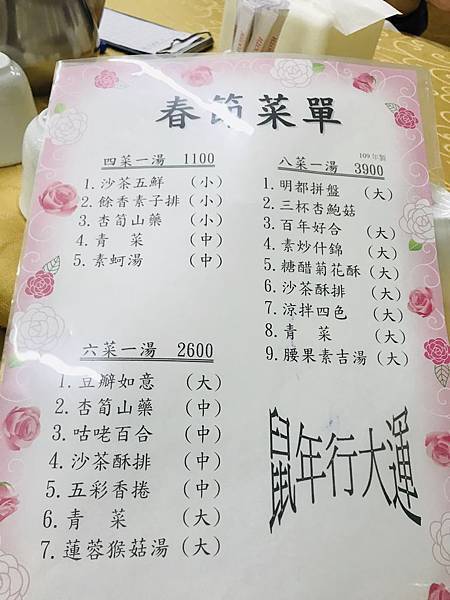 春節菜單
四菜一湯 1100
1.沙茶五鮮 (小)
2.餘香素子排 (小)
3.杏筍山藥 (小)
4.青 菜 (中)
5.素蚵湯 (中)
六菜一湯 2600
1.豆瓣如意 (大)
2.杏筍山藥 (中)
3.咕咾百合 (中)
4.沙茶酥排 (中)
5.五彩香捲 (中)
6.青 菜 (大)
7.蓮蓉猴菇湯 (大)
109年製
八菜一湯 3900
1.明都拼盤 (大)
2.三杯杏鮑菇
3.百年好合 (大)
4.素炒什錦 (大)
5.糖醋菊花酥 (大)
6.沙茶酥排 (大)
7.涼拌四色 (大)
8.青 菜 (大)
9.腰果素吉湯 (大)
鼠年行大運